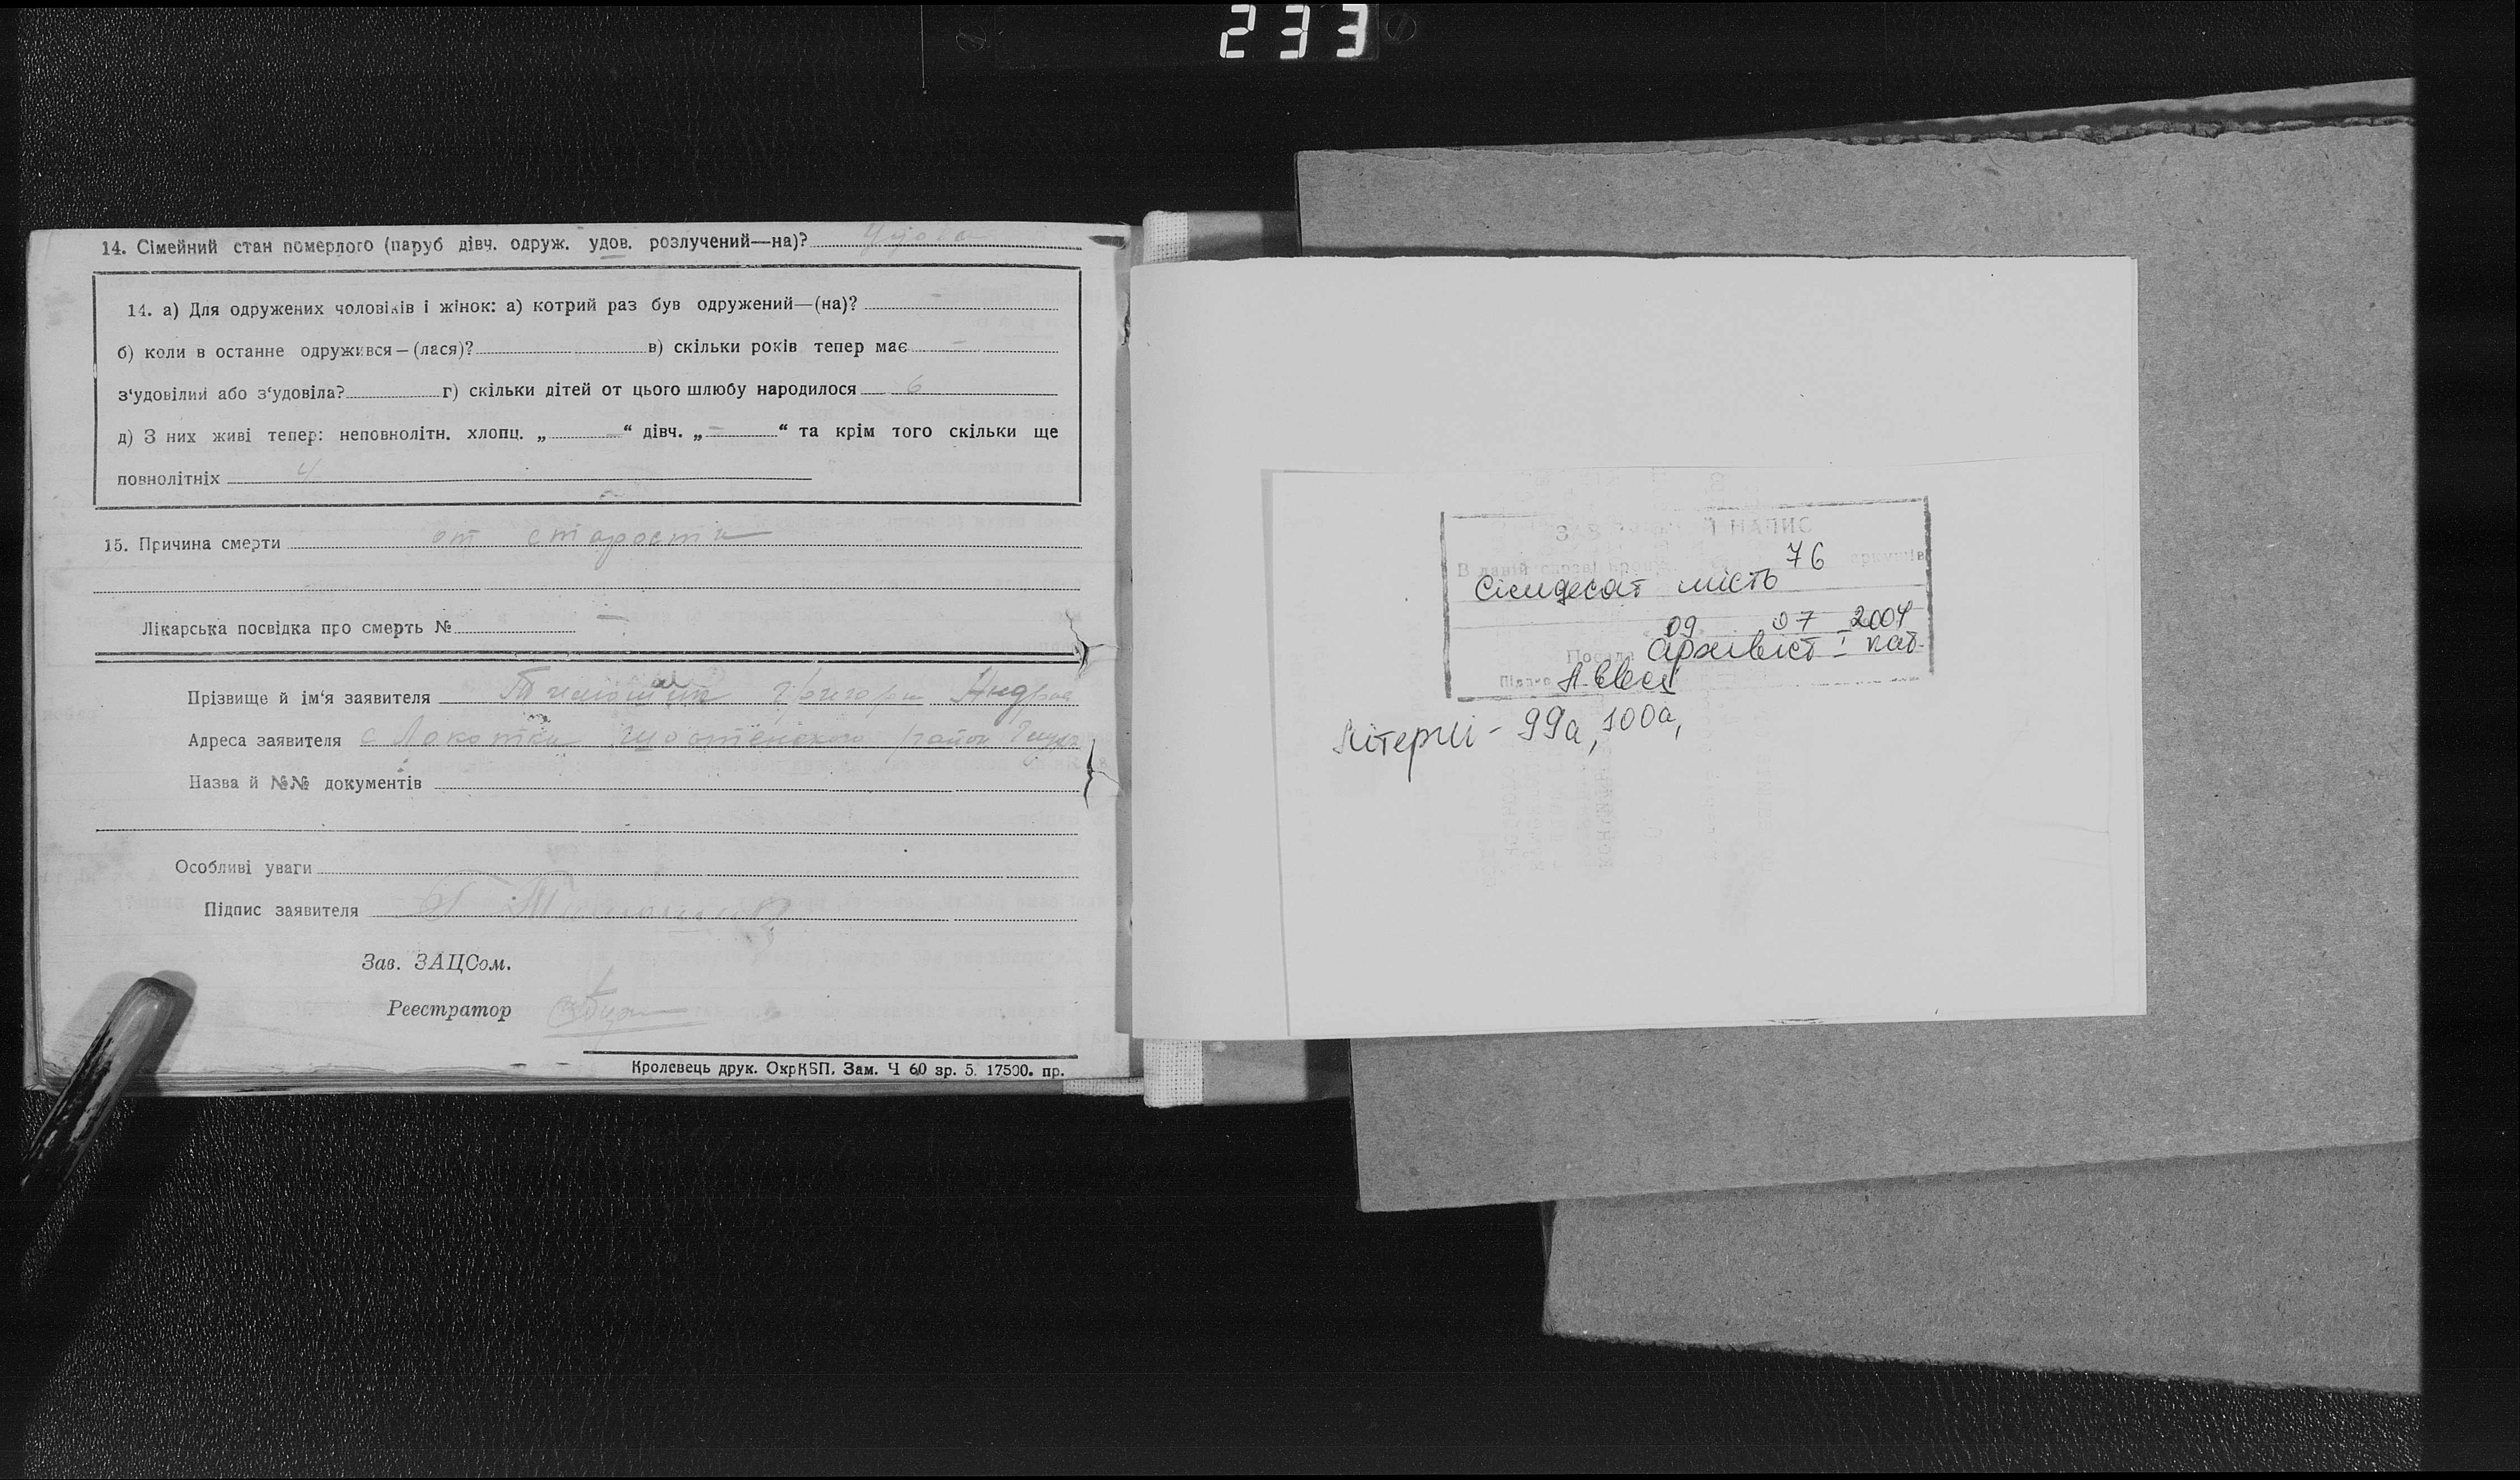 233
14. Сімейний стан померлого (паруб дівч. одруж. удов. розлучений—на)? Удова
14. а) Для одружених чоловіків і жінок: а) котрий раз був одружений—(на)? -
б) коли в останне одружився—(лася)? в) скільки років тепер має -
з‘удовілий або з‘удовіла? г) скільки дітей от цього шлюбу народилося 6
д) З них живі тепер: неповнолітн. хлопц. „ — “ дівч. „ — “ та крім того скільки ще
повнолітніх 4
15. Причина смерти от старости
Лікарська посвідка про смерть № —
Прізвище й ім‘я заявителя Григори Андров
Адреса заявителя с Локотки Шостенского район
Назва й №№ документів
Особливі уваги
Підпис заявителя Г
Зав. ЗАЦСом.
Реєстратор
Кролевець друк. ОкрКБП. Зам. Ч 60 зр. 5. 17500. пр.
НАПИС
В даній справі 76 аркушів
Сімдесат шість
09 07 2004
Посада Архівіст І кат.
Підпис
Літерні - 99а, 100а,